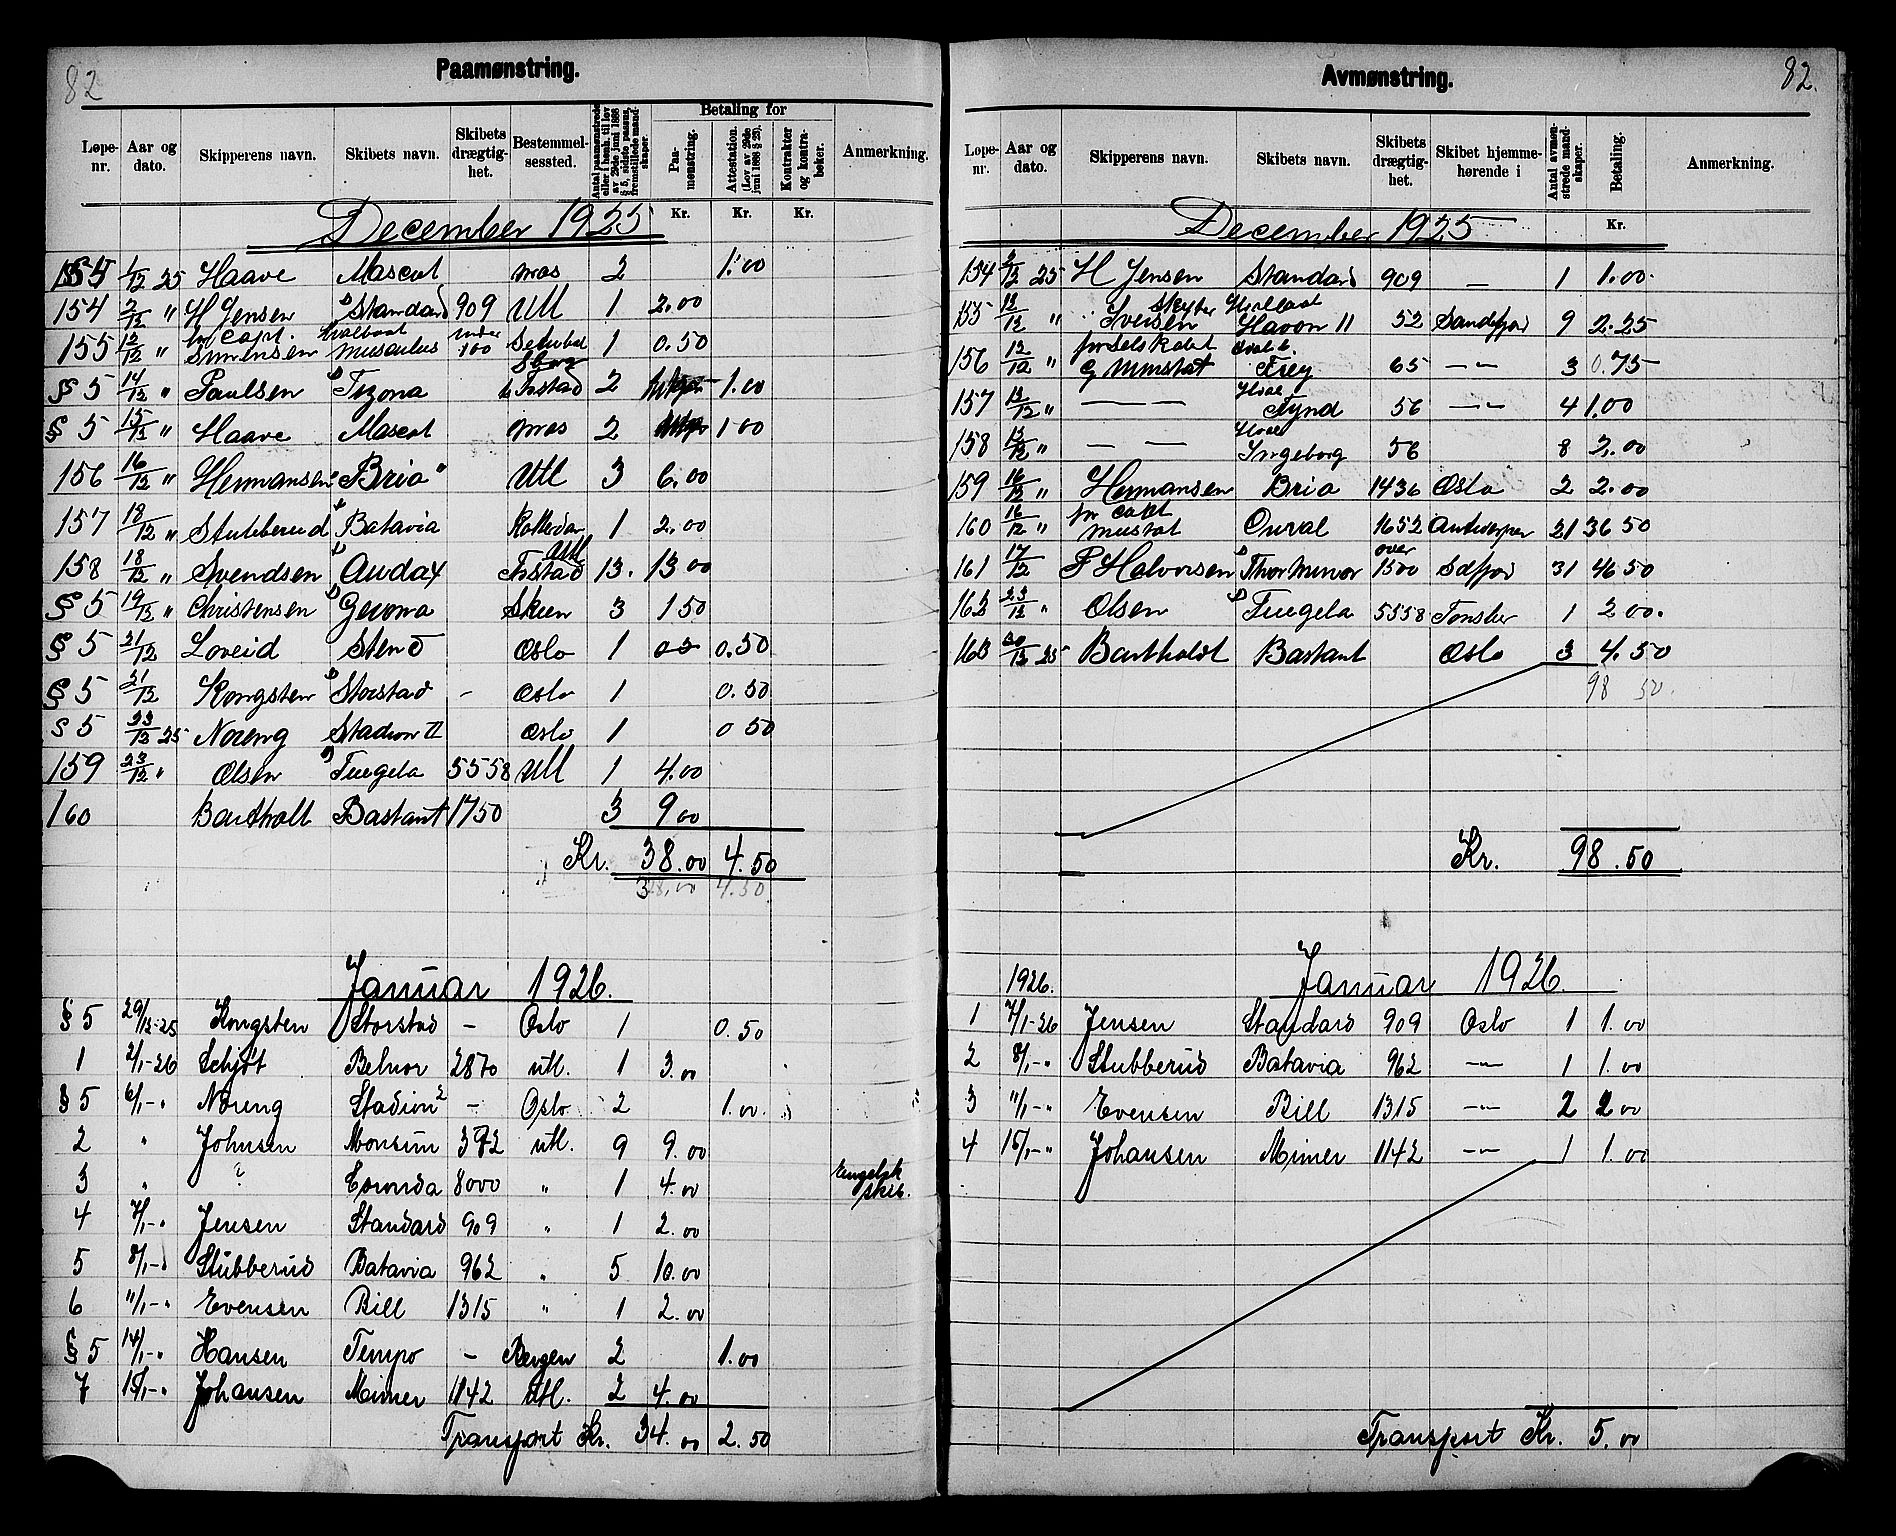 82
Paamønstring.
Løpe-nr. Aar og dato. Skipperens navn. Skibets navn. Skibets drægtig-het. Bestemmel-sessted. Antal paamønstrede eller i henh. til lov av 29de juni 1888 § 5, sidste passus, fremstillede mand-skaper. Betaling for Paa-mønstring. Attestation. (Lov av 29de juni 1888 § 23). Kontrakter og kontra-bøker. Anmerkning.
Kr. Kr. Kr.
December 1925
1/12 25 Haave Mascot Moss 2 1.00
154 2/12 " H Jensen Standard 909 Utl 1 2.00
155 12/12 " Capt. Simensen Hvalbaat Musculus under 100 1 0.50
§ 5 14/12 " Paulsen Tizona 2 1.00
§ 5 15/12 " Haave Mascot Moss 2 1 00
156 16/12 " Hermansen "Bria" Utl 3 6.00
157 18/12 " Stubberud Batavia Rotterdam 1 2.00
158 18/12 " Svendsen Audax Utl 13. 13 00
§ 5 19/12 " Christensen Gerona Skien 3 1 50
§ 5 21/12 Loveid Steno Oslo 1 0.50
§ 5 21/12 Kongsten Storstad - Oslo 1 0.50
§ 5 23/12 25 Noreng Stadion II Oslo 1 0 50
159 23/12 " Olsen Tugela 5558 Utl 1 4.00
160 Bartholt Bastant 1750 3 9 00
Kr. 38.00 4.50
38.00 4.50
Januar 1926.
§ 5 29/12-25 Kongsten Storstad - Oslo 1 0.50
1 2/1-26 Schjøt Belnor 2870 utl. 1 3.00
§ 5 6/1-" Noreng Stadion 2 - Oslo 2 1.00
2 " Johnsen Monsun 372 utl. 9 9.00
3 " ? Coronda 8000 " 1 4.00 Engelsk skib.
4 7/1-" Jensen Standard 909 " 1 2.00
5 8/1-" Stubberud Batavia 962 " 5 10.00
6 11/1-" Evensen Bill 1315 " 1 2.00
§ 5 14/1-" Hansen Tempo - Bergen 2 1.00
7 15/1-" Johansen Mimer 1142 Utl. 2 4.00
Transport Kr. 34.00 2.50
82.
Avmønstring.
Løpe-nr. Aar og dato. Skipperens navn. Skibets navn. Skibets drægtig-het. Skibet hjemme-hørende i Antal avmøn-strede mand-skaper. Betaling. Anmerkning.
Kr.
December 1925
154 2/12 25 H Jensen Standard 909 — 1 1.00
155 12/12 " Skyter Iversen Hvalbaat Havørn II 52 Sandefjord 9 2.25
156 12/12 " for Selskabet Hvalb. Frey 65 — " — 3 0.75
157 12/12 " — — — Hval Fynd 56 — " — 4 1.00
158 12/12 " — — Hval Ingeborg 56 8 2.00
159 16/12 " Hermansen Bria 1436 Oslo 2 2.00
160 16/12 " for Capt Mustat Orwal 1652 Antwerpen 21 36 50
161 17/12 P Halvorsen Thor Minor over 1500 Sdfjord 31 46 50
162 23/12 " Olsen Tugela 5558 Tønsber 1 2 00.
163 30/12 25 Bartholdt Bastant Oslo 3 4.50
98 50.
Kr. 98.50
1926. Januar 1926.
1 7/1-26 Jensen Standard 909 Oslo 1 1.00
2 8/1-" Stubberud Batavia 962 — " — 1 1.00
3 11/1-" Evensen Bill 1315 — " — 2 2 00
4 15/1-" Johansen Mimer 1142 — " — 1 1.00
Transport Kr. 5.00